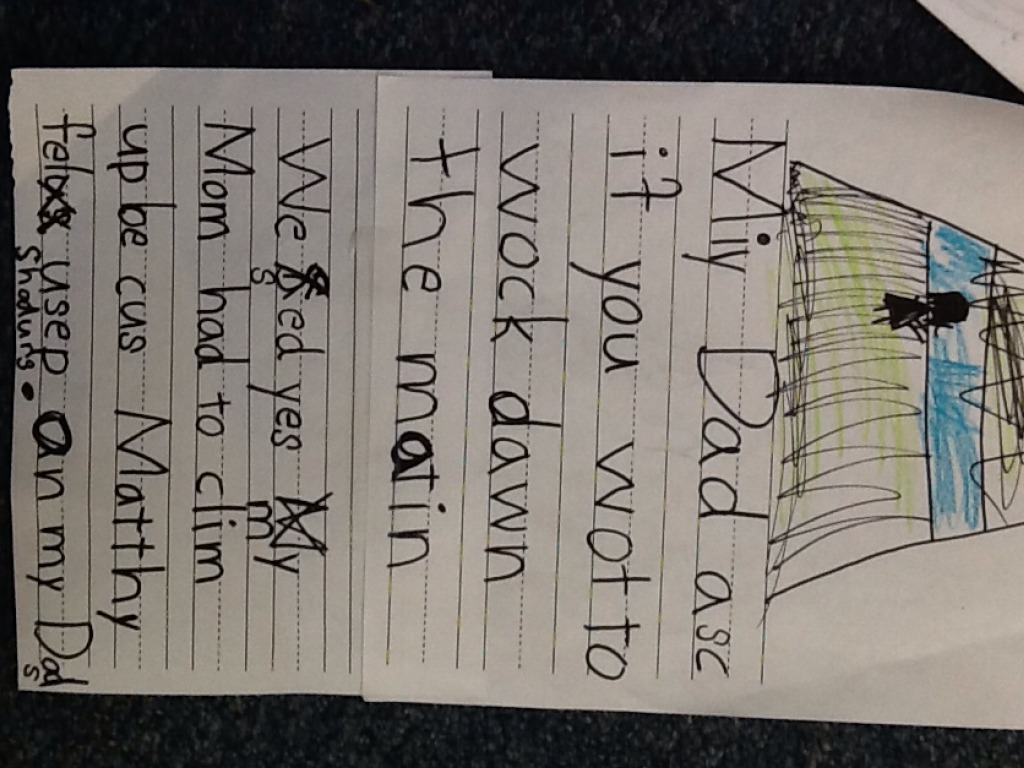 Miy Dad asc
if you wot to
wock dawn
the matin
We sed yes my
Mom had to clim
up be cus Matthy
fel usep an my Dads
shodurs.